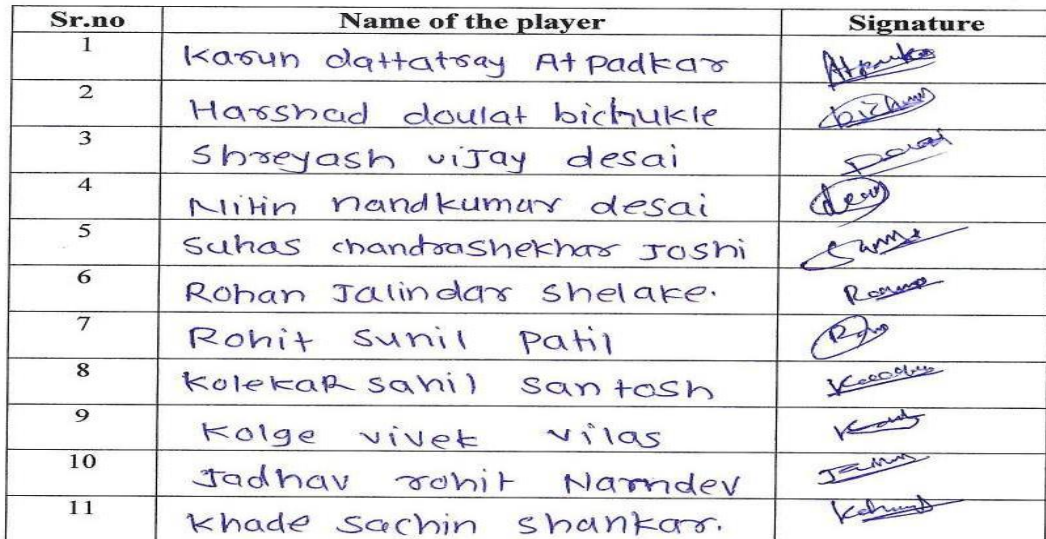 Sr.no Name of the player Signature
1 Karun dattatray Atpadkar
2 Harshad doulat bichukle bichu
3 Shreyash vijay desai Desai
4 Nitin nandkumar desai
5 Suhas chandrashekhar Joshi
6 Rohan Jalindar Shelake.
7 Rohit Sunil Patil
8 KolekaR sahil santosh
9 Kolge vivek vilas
10 Jadhav rohit Namdev
11 Khade Sachin Shankar.